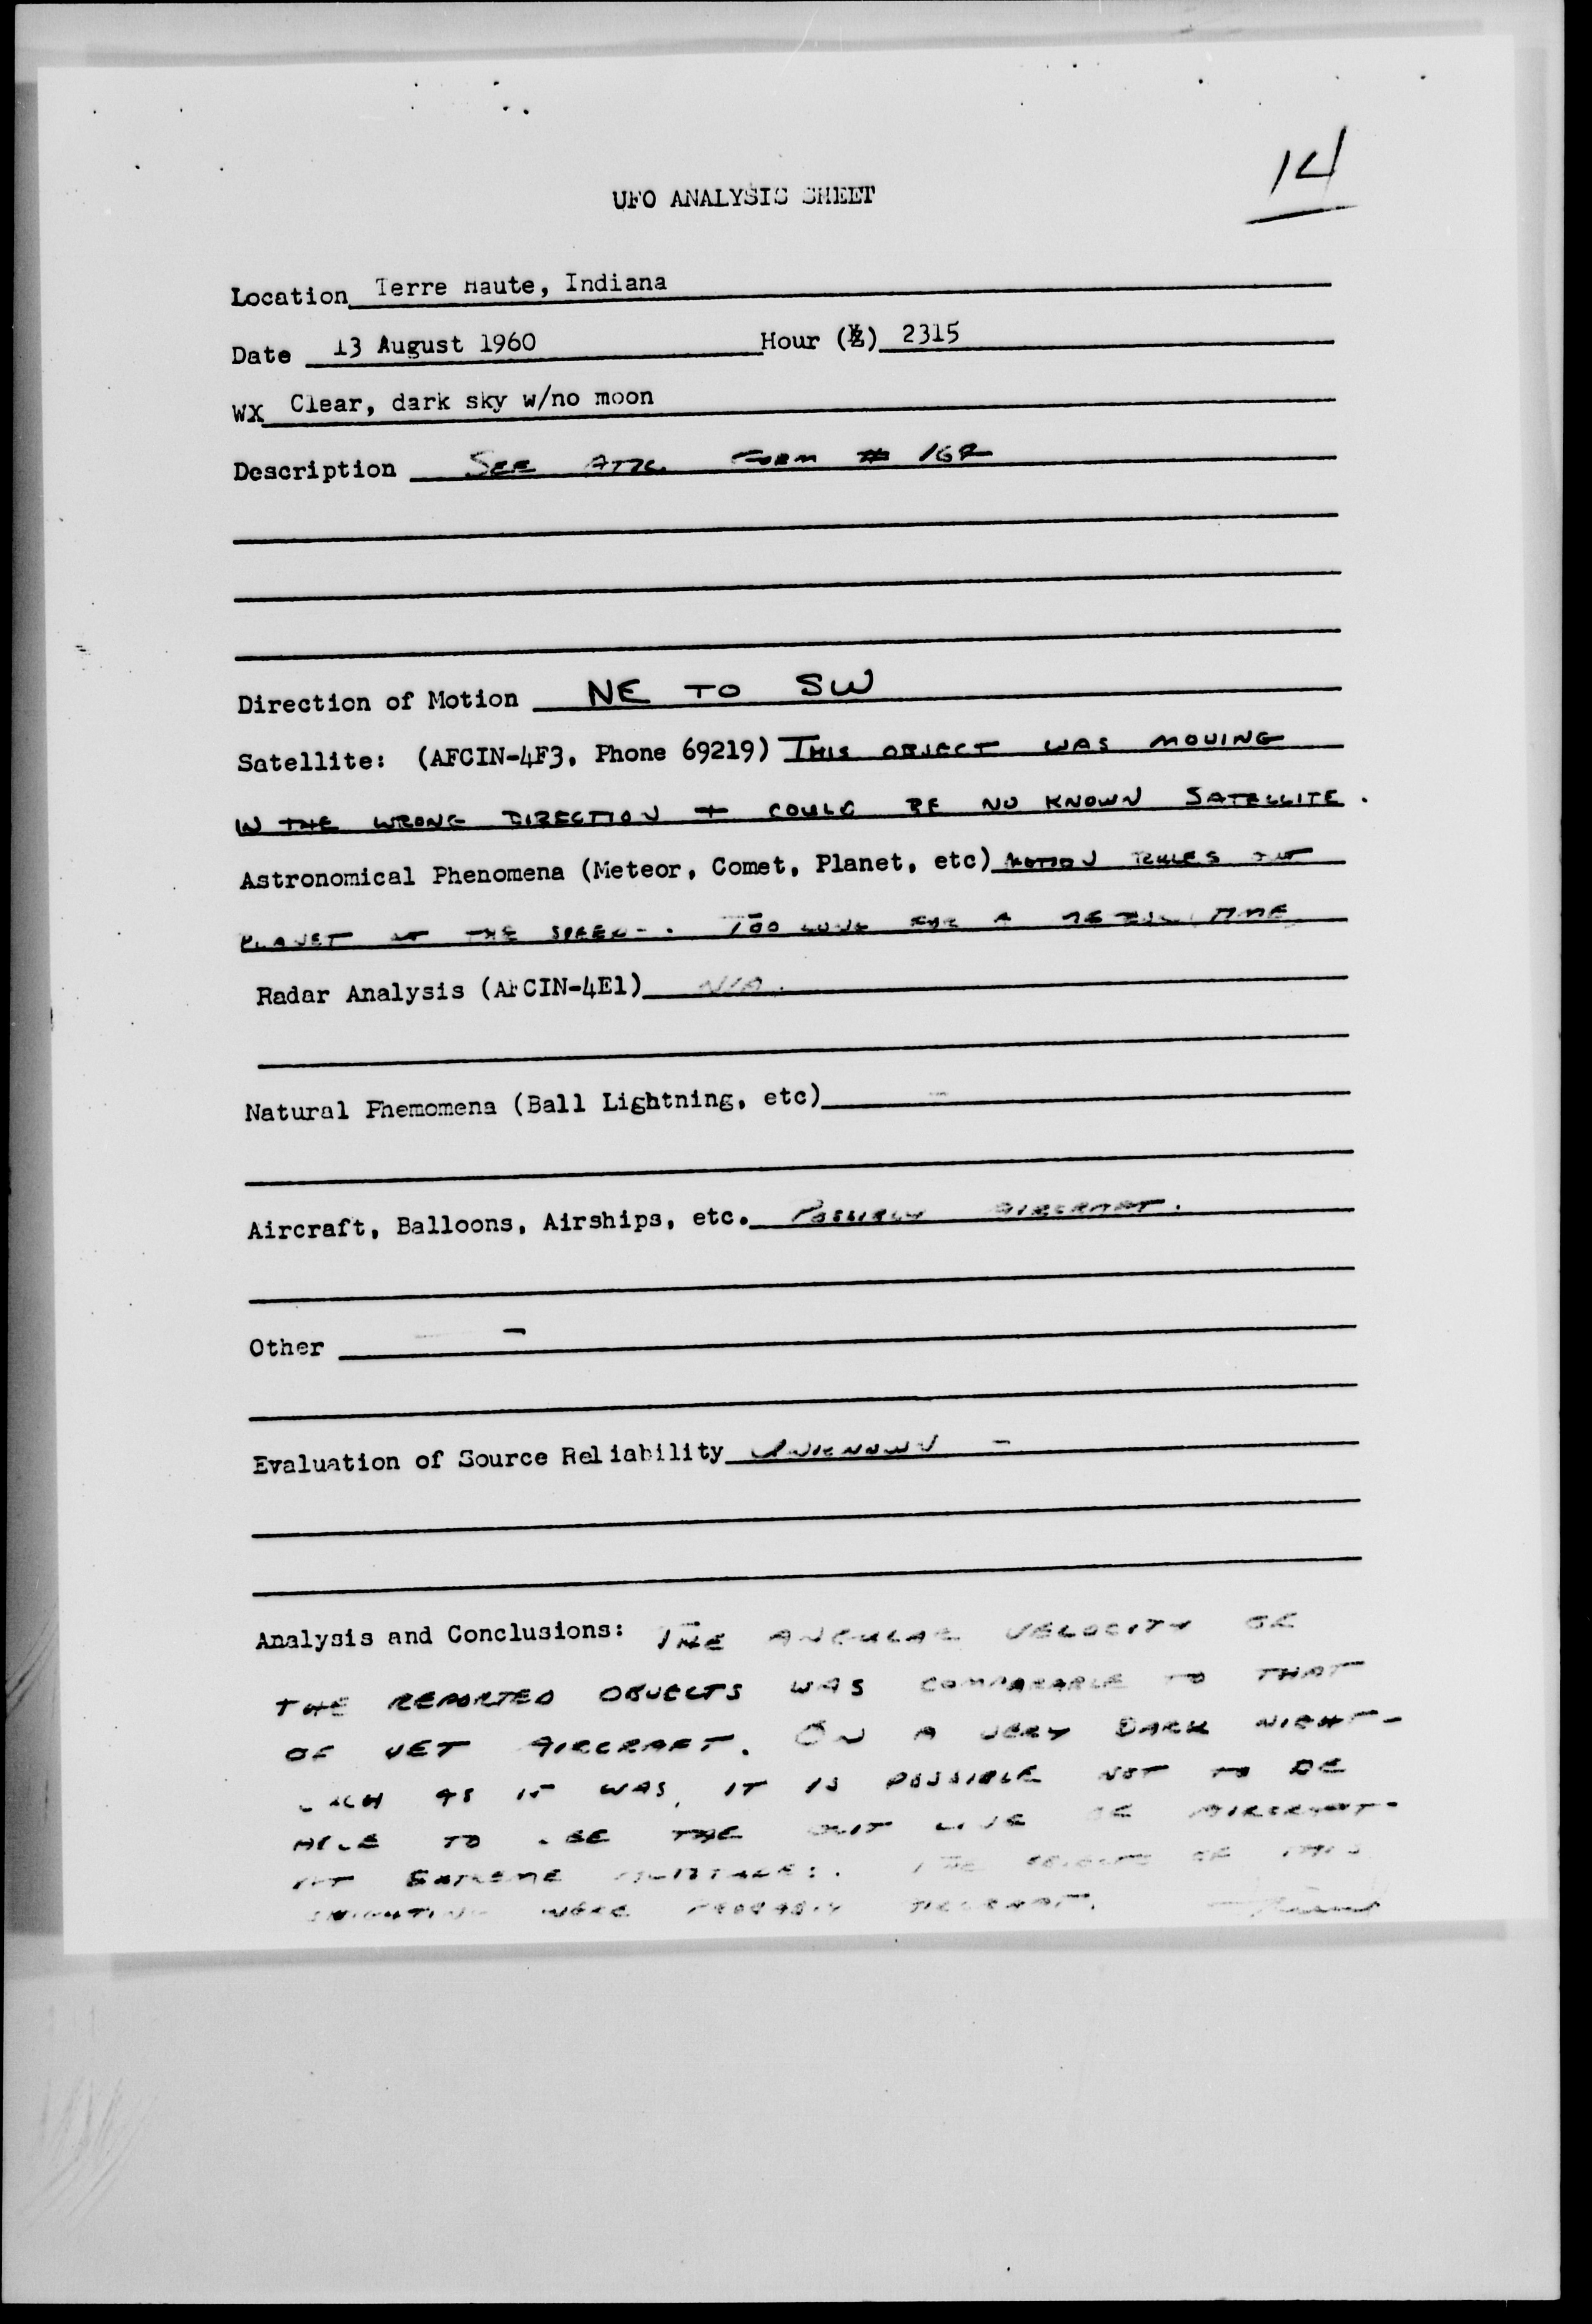 14
UFO ANALYSIS SHEET
Location Terre Haute, Indiana
Date 13 August 1960 Hour (Z) 2315
WX Clear, dark sky w/no moon
Description SEE ATTC. FORM # 164
Direction of Motion NE TO SW
Satellite: (AFCIN-4F3, Phone 69219) THIS OBJECT WAS MOVING
IN THE WRONG DIRECTION + COULD BE NO KNOWN SATELLITE.
Astronomical Phenomena (Meteor, Comet, Planet, etc) MOTION RULES OUT
PLANET THE SPEED. TOO LONG FOR A METEOR, TIME
Radar Analysis (AFCIN-4E1) N/A.
Natural Phemomena (Ball Lightning, etc) -
Aircraft, Balloons, Airships, etc. POSSIBLY AIRCRAFT.
Other -
Evaluation of Source Reliability UNKNOWN -
Analysis and Conclusions: THE ANGULAR VELOCITY OF
THE REPORTED OBJECTS WAS COMPARABLE TO THAT
OF JET AIRCRAFT. ON A VERY DARK NIGHT-
SUCH AS IT WAS, IT IS POSSIBLE NOT TO BE
ABLE TO SEE THE OUT LINE OF AIRCRAFT-
AT EXTREME DISTANCES. THE OBJECTS OF THIS
SIGHTING WERE PROBABLY AIRCRAFT.